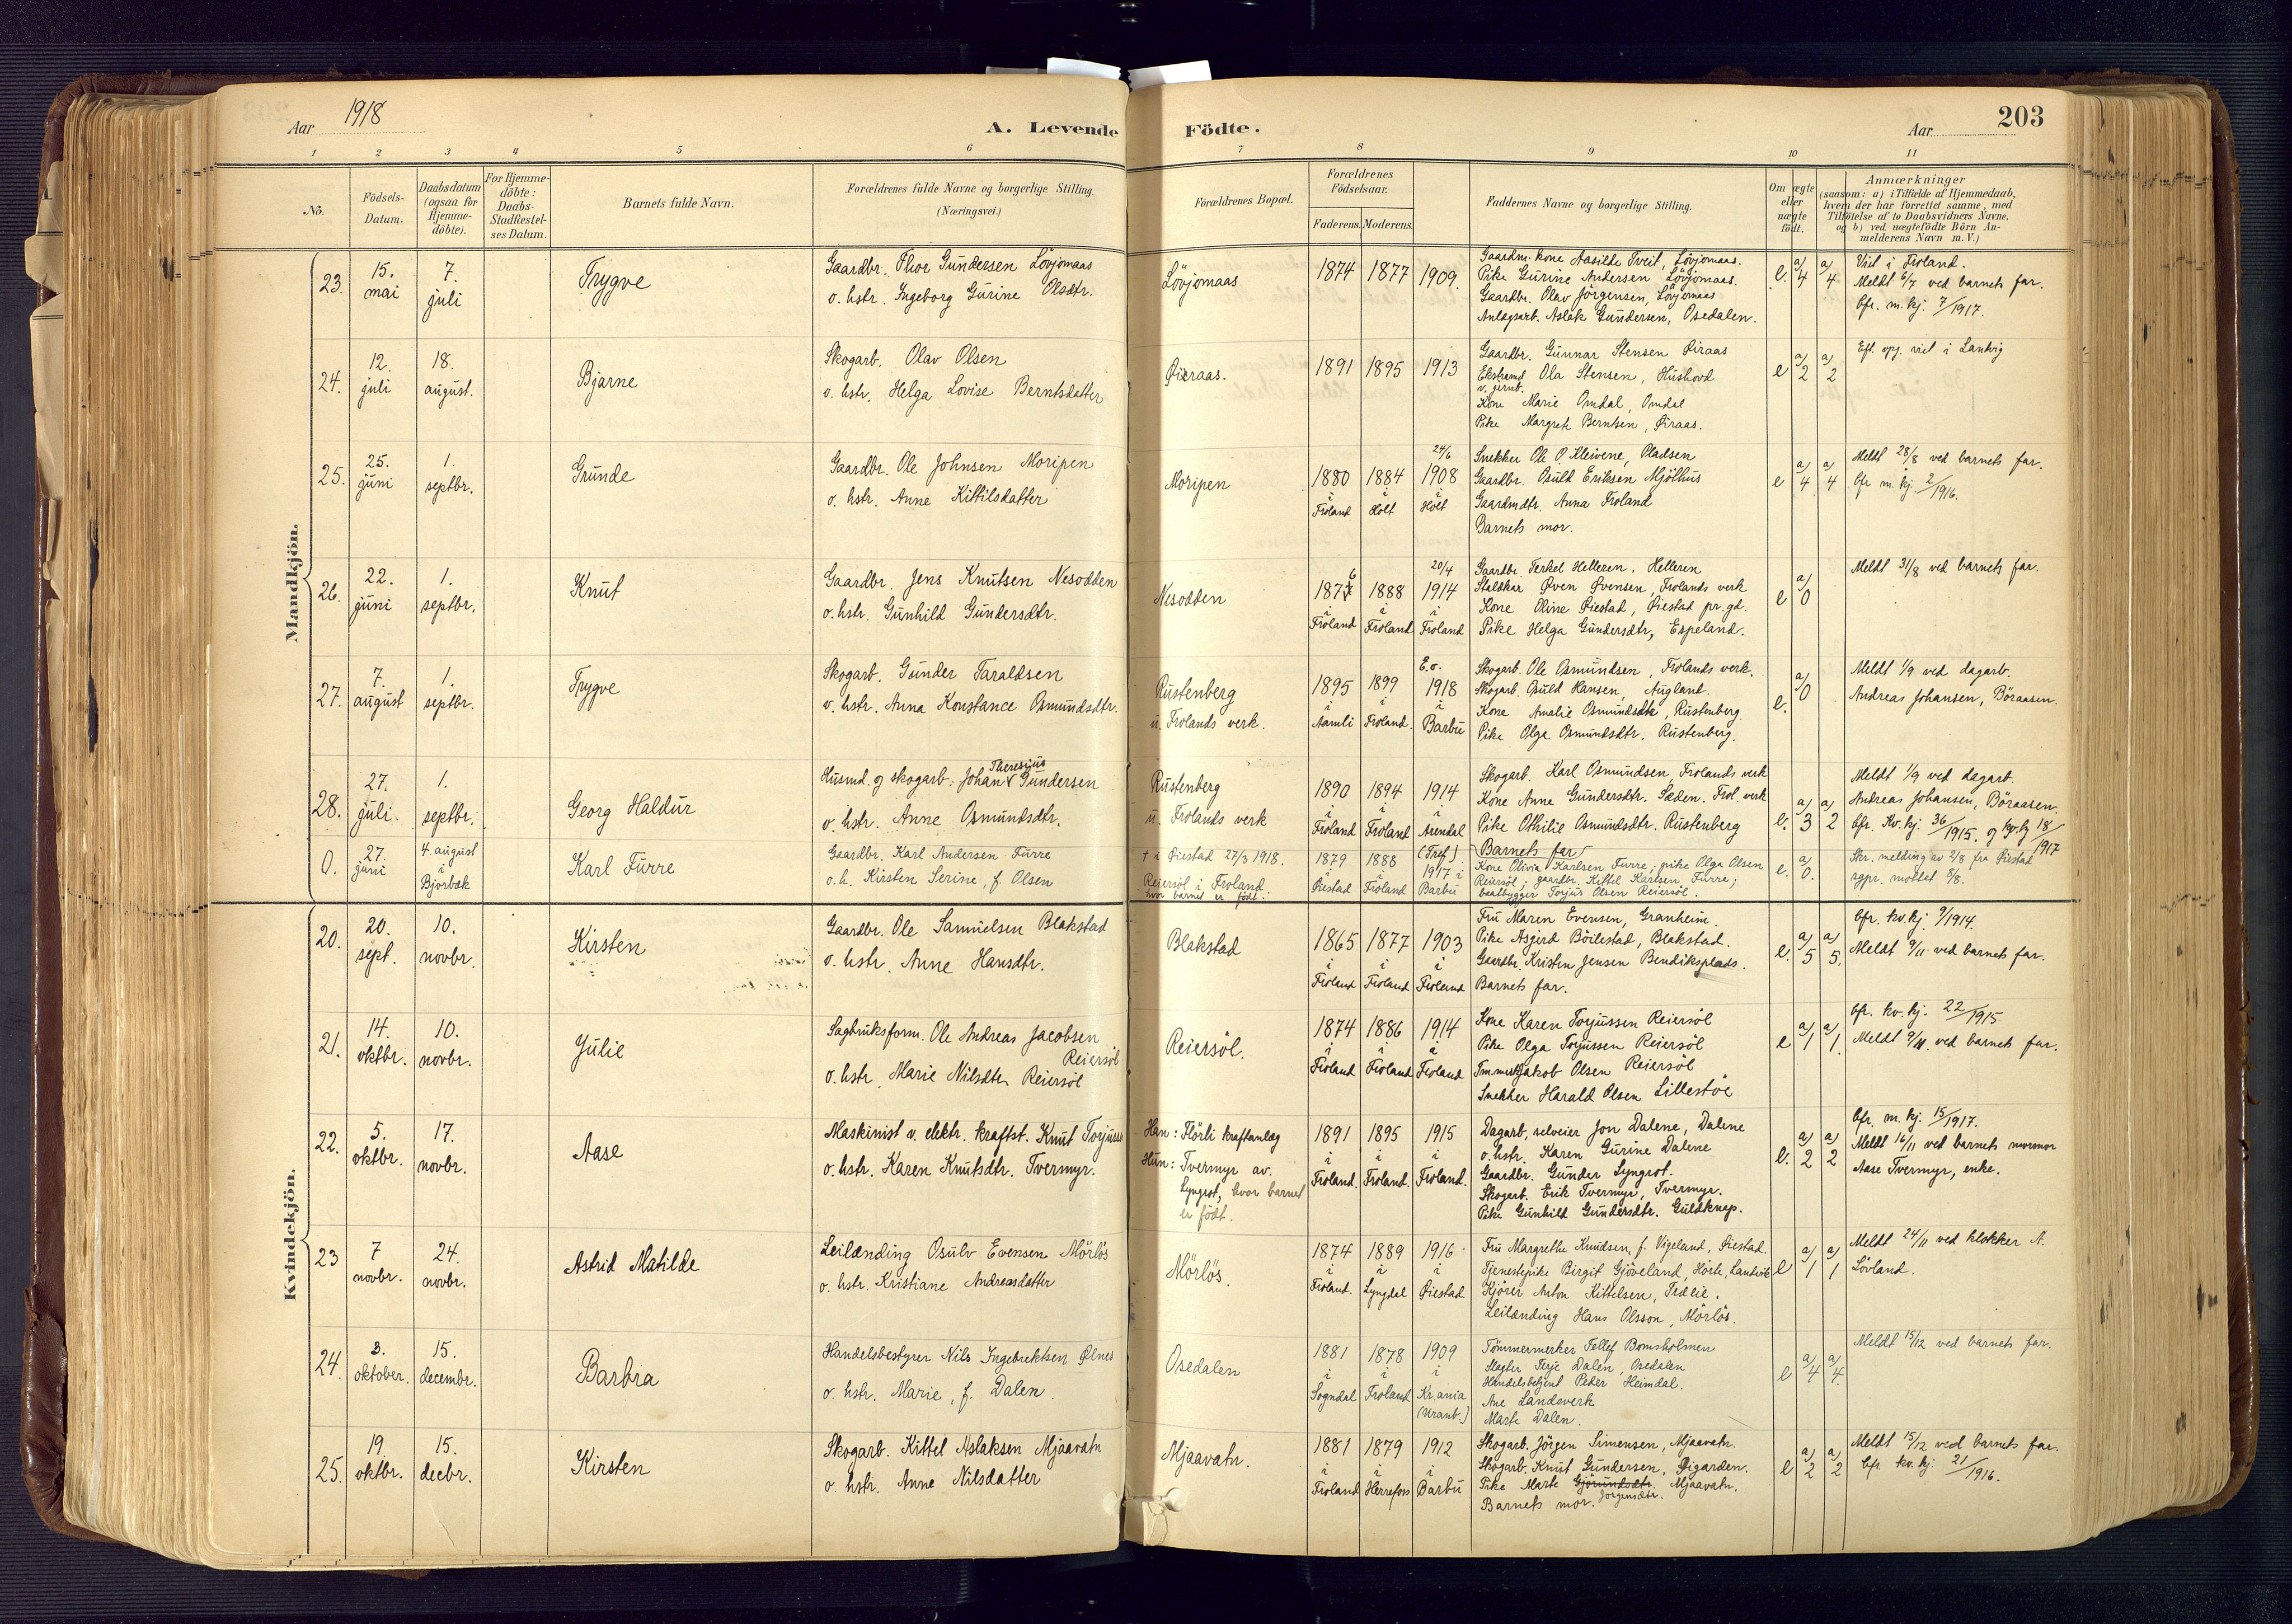 Aar 1918
A. Levende Födte.
Aar
203
1 2 3 4 5 6 7 8 9 10 11
No.
Födsels-Datum.
Daabsdatum (ogsaa for Hjemme-döbte).
For Hjemme-döbte: Daabs-Stadfæstel-ses Datum.
Barnets fulde Navn.
Forældrenes fulde Navne og borgerlige Stilling.
(Næringsvei.)
Forældrenes Bopæl.
Forældrenes Födselsaar.
Faderens. Moderens.
Faddernes Navne og borgerlige Stilling.
Om ægte eller uægte födt.
Anmærkninger
(saasom: a) i Tilfælde af Hjemmedaab,
hvem der har forrettet samme, med
Tilföielse af to Daabsvidners Navne,
og b) ved uægtefödte Börn An-
melderens Navn m. V.)
Mandkjön.
23. 15. mai 7. juli Trygve
Gaardbr. Thor Gundersen Lövjomaas
o. hstr. Ingeborg Gurine Olsdtr.
Lövjomaas 1874 1877 1909.
Gaardm. kone Aasilde Tveit, Lövjomaas.
Pike Gurine Andersen Lövjomaas.
Gaardbr. Olav Jörgensen, Lövjomaas
Anlægsarb. Aslak Gundersen, Osedalen.
e. a/4 a/4
Viet i Froland.
Meldt 6/7 ved barnets far.
Cfr. m. kj. 7/1917.
24. 12. juli 18. august. Bjarne
Skogarb. Olav Olsen
o. hstr. Helga Lovise Berntsdatter
Öieraas. 1891 1895 1913
Gaardbr. Gunnar Stensen Öiraas
Ekstramd v. jernb. Ola Stensen, Hushovd
Kone Marie Omdal, Omdal
Pike Margret Berntsen, Öiraas.
e a/2 a/2
Eft. opg. viet i Landvig
25. 25. juni 1. septbr. Grunde
Gaardbr. Ole Johnsen Moripen
o. hstr. Anne Kittilsdatter
Moripen 1880 i Froland 1884 i Holt 24/6 1908 i Holt
Snekker Ole P. Kleivene, Pladsen
Gaardbr. Osuld Eriksen Mjölhus
Gaardmdtr. Anna Froland
Barnets mor.
e a/4 a/4
Meldt 28/8 ved barnets far.
Cfr m. kj. 2/1916.
26. 22. juni 1. septbr. Knut
Gaardbr. Jens Knutsen Nesodden
o. hstr. Gunhild Gundersdtr.
Nesodden 1876 i Froland 1888 i Froland 20/4 1914 i Froland
Gaardbr. Terkel Helleren, Helleren
Staldkar Öven Övensen, Frolands verk
Kone Oline Öiestad, Öiestad pr. gd.
Pike Helga Gundersdtr, Espeland.
e a/0
Meldt 31/8 ved barnets far.
27. 7. august 1. septbr. Trygve
Skogarb. Gunder Taraldsen
o. hstr. Anna Konstance Osmundsdtr.
Rustenberg u. Frolands verk. 1895 i Aamli 1899 i Froland. E.o. 1918 i Barbu
Skogarb. Ole Osmundsen, Frolands verk.
Skogarb. Osuld Hansen, Augland.
Kone Amalie Osmundsdtr, Rustenberg.
Pike Olga Osmundsdtr. Rustenberg.
e. a/0
Meldt 1/9 ved dagarb.
Andreas Johansen, Böraasen.
28. 27. juli 1. septbr. Georg Haldur
Husmd. og skogarb. Johan Theresius Gundersen
o. hstr. Anne Osmundsdtr.
Rustenberg u. Frolands verk 1890 i Froland 1894 i Froland 1914 i Arendal (Tref.)
Skogarb. Karl Osmundsen, Frolands verk
Kone Anne Gundersdtr. Sæden. Frol. verk
Pike Othilie Osmundsdtr. Rustenberg
Barnets far
e. a/3 a/2
Meldt 1/9 ved dagarb.
Andreas Johansen, Böraasen.
Cfr. Kv. kj. 36/1915. og kv. kj 18/1917
0. 27. juni 4. august i Bjorbæk Karl Furre
Gaardbr. Karl Andersen Furre
o. h. Kirsten Serine, f. Olsen
† i Öiestad 27/3 1918.
Reiersöl i Froland. hvor barnet er födt.
1879 i Öiestad 1888 i Froland 1917 i Barbu
Kone Olivia Karlsen Furre; pike Olga Olsen
Reiersöl; gaardbr. Kittel Karlsen Furre;
baatbygger Torjus Olsen Reiersöl.
e. a/0.
Skr. melding av 2/8 fra Öiestad
sgpr. mottat 5/8.
Kvindekjön.
20. 20. sept. 10. novbr. Kirsten
Gaardbr. Ole Samuelsen Blakstad
o. hstr. Anne Hansdtr.
Blakstad 1865 i Froland 1877 i Froland 1903 i Froland
Fru Maren Evensen, Granheim.
Pike Asgjerd Böilestad, Blakstad.
Gaardbr. Kristen Jensen Bendiksplads.
Barnets far.
e. a/5 a/5.
Cfr. kv. kj. 9/1914.
Meldt 9/11 ved barnets far.
21. 14. oktbr. 10. novbr. Julie
Sagbruksform. Ole Andreas Jacobsen Reiersöl
o. hstr. Marie Nilsdtr Reiersöl
Reiersöl. 1874 i Froland 1886 i Froland 1914 i Froland
Kone Karen Torjussen Reiersöl
Pike Olga Torjussen Reiersöl
Tm.merk Jakob Olsen Reiersöl
Snekker Harald Olsen Lillestöe
e a/1 a/1.
Cfr. kv. kj. 22/1915
Meldt 9/11. ved barnets far.
22. 5. oktbr. 17. novbr. Aase
Maskinist v. elektr. kraftst. Knut Torjuss
o. hstr. Karen Knutsdtr. Tvermyr.
Han: Flörli kraftanlæg
Hun: Tvermyr av. Lyngrot, hvor barnet er födt.
1891 i Froland. 1895 i Froland. 1915 i Froland.
Dagarb, selveier Jon Dalene, Dalene
o. hstr. Karen Gurine Dalene
Gaardbr. Gunder Lyngrot.
Skogarb. Erik Tvermyr, Tvermyr.
Pike Gunhild Gundersdtr. Guldknap.
e. a/2 a/2
Cfr. m. kj. 15/1917.
Meldt 16/11 ved barnets mormor
Aase Tvermyr, enke.
23 7 novbr. 24. novbr. Astrid Matilde
Leilænding Osulv Evensen Mörlös
o. hstr. Kristiane Andreasdatter
Mörlös. 1874 i Froland. 1889 i Lyngdal 1916 i Öiestad
Fru Margrethe Knudsen, f. Vigeland, Öiestad.
Tjenestepike Birgit Gjöveland, Hörte, Landvik
Kjörer Anton Kittelsen, Trælie.
Leilænding Hans Olsson, Mörlös.
e a/1 a/1
Meldt 24/11 ved klokker A.
Lövland.
24. 3. oktober. 15. decembr. Barbra
Handelsbestyrer Nils Ingebrektsen Ölnes
o. hstr. Marie, f. Dalen.
Osedalen 1881 i Sogndal 1878 i Froland 1909 i Kr.ania (Uranb.)
Tömmermerker Tellef Bomsholmen
Slegter Terje Dalen, Osedalen
Handelsbetjent Peder Heimdal.
Ane Landsverk
Marte Dalen.
e a/4 a/4.
Meldt 15/12 ved barnets far.
25. 19. oktbr. 15. decbr. Kirsten
Skogarb. Kittel Aslaksen Mjaavatn
o. hstr. Anne Nilsdatter
Mjaavatn. 1881 i Froland 1879 i Herrefoss 1912 i Barbu
Skogarb. Jörgen Simensen, Mjaavatn.
Skogarb. Knut Gundersen, Öigarden.
Pike Marte Gjörundsdtr. Jörgensdtr. Mjaavatn.
Barnets mor.
e a/2 a/2
Meldt 15/12 ved barnets far.
Cfr kv. kj. 21/1916.